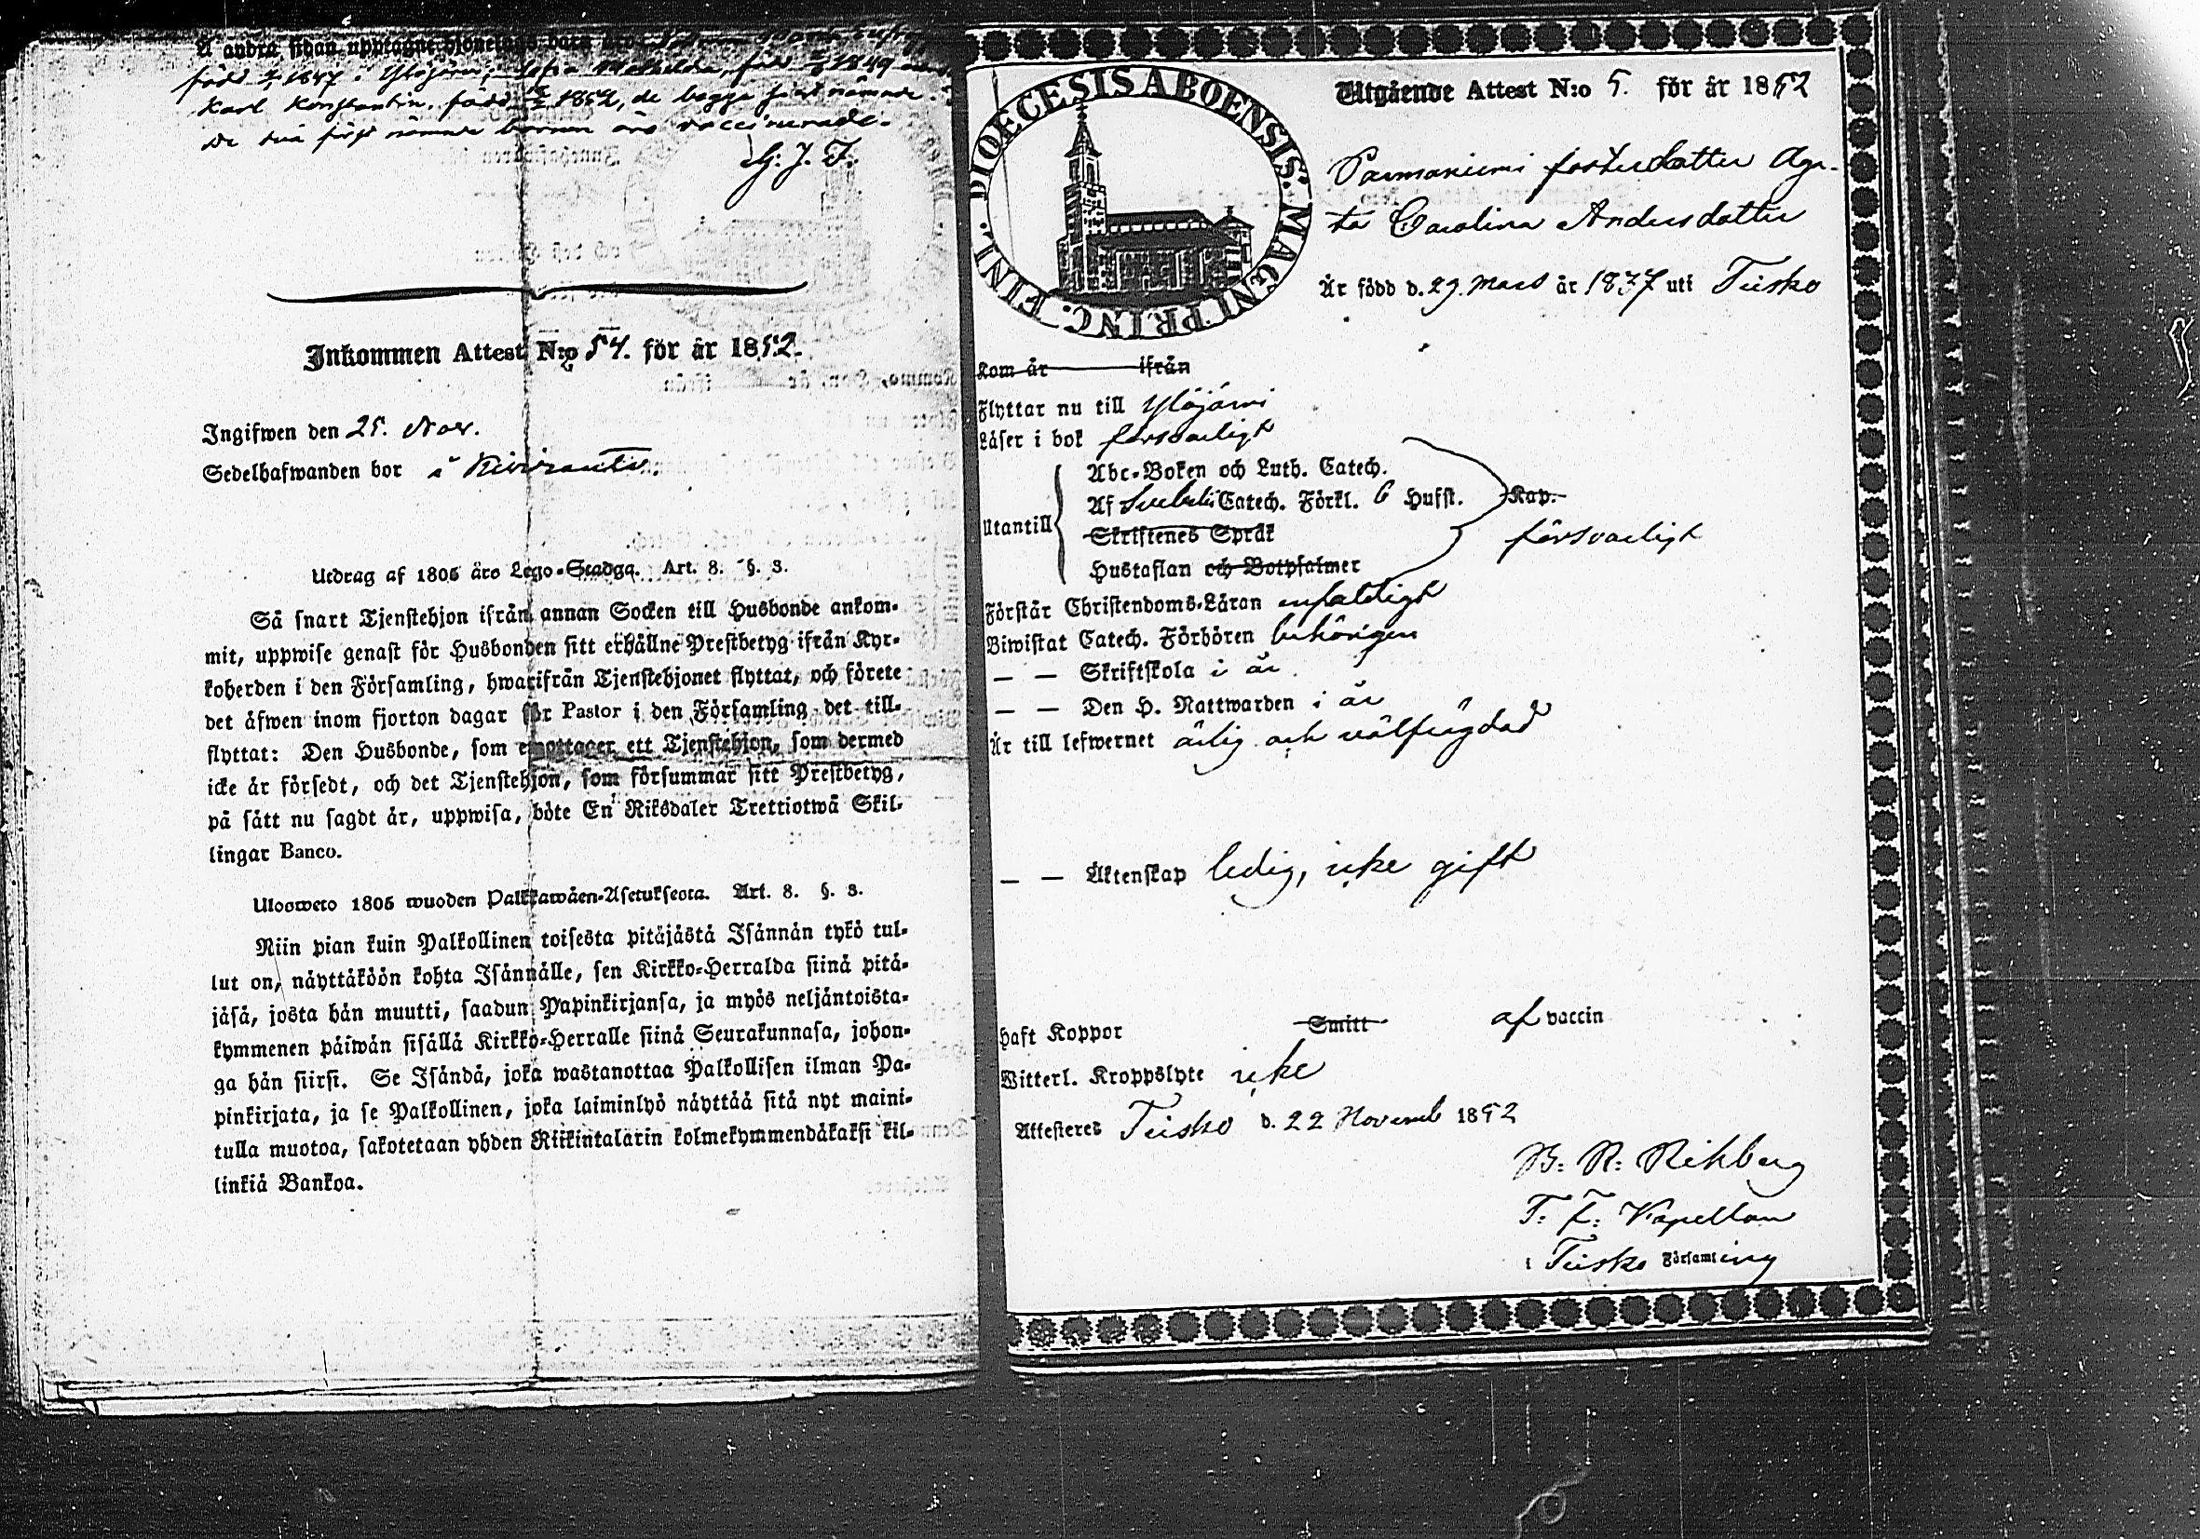 å andra sidan upptagne hjonelags barn äro
född 1847 i Ylöjärvi; Sofia Mathilda, född 1849
Karl Konstantin, född 1852, de begge
De två först nämnde barnen äro vaccinerade.
G. J. F.
Inkommen Attest N:o 54. för år 1852.
Ingifwen den 25. Nov.
Sedelhafwanden bor i
Utdrag af 1805 års Lego-Stadga. Art. 8. §. 3.
Så snart Tjenstehjon ifrån annan Socken till Husbonde ankom-
mit, uppwise genast för Husbonden sitt erhållne Prestbetyg ifrån Kyr-
koherden i den Församling, hwarifrån Tjenstehjonet flyttat, och förete
det äfwen inom fjorton dagar för Pastor i den Församling det till-
flyttat: Den Husbonde, som emottager ett Tjenstehjon, som dermed
icke är försedt, och det Tjenstehjon, som försummar sitt Prestbetyg,
på sätt nu sagdt är, uppwisa, böte En Riksdaler Trettiotwå Skil-
lingar Banco.
Ulosweto 1805 wuoden Palkkawäen-Asetuksesta. Art. 8. §. 3.
Niin pian kuin Palkollinen toisesta pitäjästä Isännän tykö tul-
lut on, näyttäköön kohta Isännälle, sen Kirkko-Herralda siinä pitä-
jäsä, josta hän muutti, saadun Papinkirjansa, ja myös neljäntoista-
kymmenen päiwän sisällä Kirkko-Herralle siinä Seurakunnasa, johon-
ga hän siirsi. Se Isändä, joka wastanottaa Palkollisen ilman Pa-
pinkirjata, ja se Palkollinen, joka laiminlyö näyttää sitä nyt maini-
tulla muotoa, sakotetaan yhden Riikintalarin kolmekymmendäkaksi kil-
linkiä Bankoa.
DIOECESIS ABOENSIS. MAGNI PRINC. FINL.
Utgående Attest N:o 5. för år 1852
Parmaniemi fosterdotter Aga-
ta Carolina Andersdotter
Är född d. 29. Mars år 1837 uti Teisko
Kom år ifrån
Flyttar nu till Ylöjärvi
Läser i bok försvarligt
Utantill
Abc-Boken och Luth. Catech.
Af Svebelii Catech. Förkl. 6 Hufst. Kap.
Skriftenes Språk
försvarligt
Hustaflan och Botpsalmer
Förstår Christendoms-Läran enfaldigt
Biwistat Catech. Förhören behörigen
— — Skriftskola i år
— — Den H. Nattwarden i år
Är till lefwernet ärlig och välfrägdad
— — Äktenskap ledig, icke gift
Haft Koppor Smitt af vaccin
Witterl. Kroppslyte icke
Attesteres Teisko d. 22 Novemb 1852
B: R: Rihberg
T. f. Kapellan
i Teisko Församling